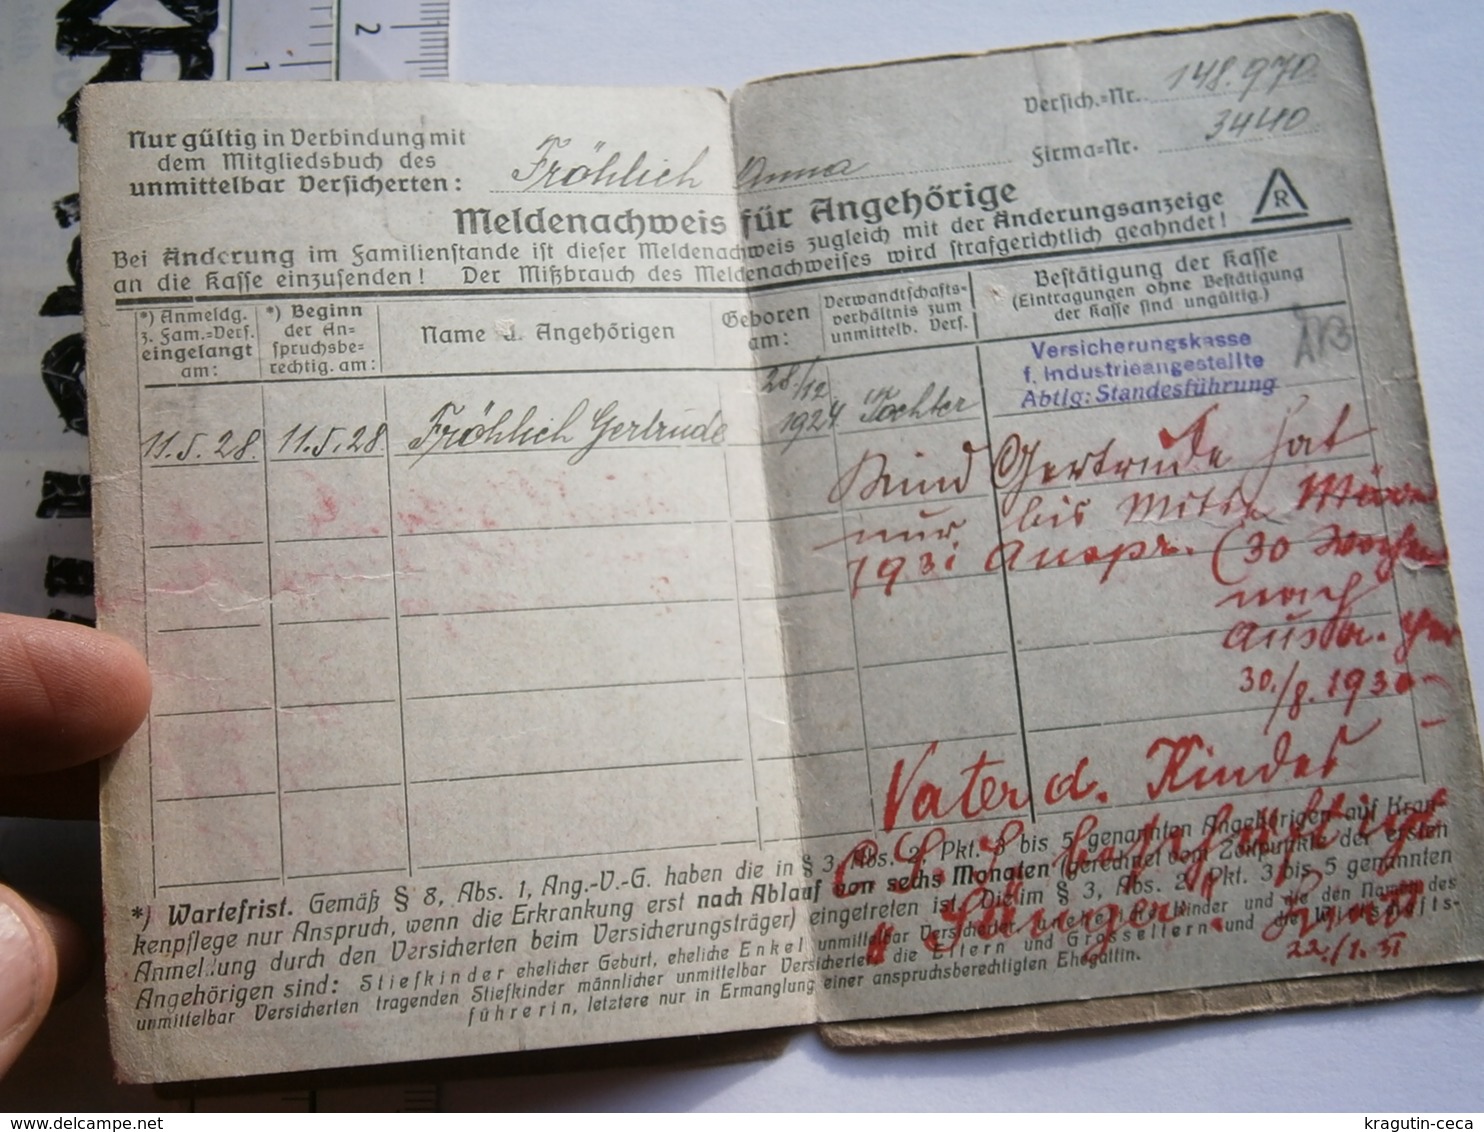 1
2
Nur gültig in Verbindung mit
dem Mitgliedsbuch des
unmittelbar Versicherten:
Fröhlich Anna
Versich.=Nr. 148.970
Firma=Nr. 3440
Meldenachweis für Angehörige
R
Bei Änderung im Familienstande ist dieser Meldenachweis zugleich mit der Änderungsanzeige
an die Kasse einzusenden! Der Mißbrauch des Meldenachweises wird strafgerichtlich geahndet!
*) Anmeldg.
z. Fam.=Vers.
eingelangt
am:
*) Beginn
der An=
spruchsbe=
rechtig. am:
Name d. Angehörigen
Geboren
am:
Verwandtschafts=
verhältnis zum
unmittelb. Vers.
Bestätigung der Kasse
(Eintragungen ohne Bestätigung
der Kasse sind ungültig.)
Versicherungskasse
f. Industrieangestellte
Abtlg: Standesführung
11.5.28. 11.5.28 Fröhlich Gertrude 28./12. 1924 Tochter
Kind Gertrude hat
nur bis Mitte
1931 Anspr. (30 Wochen
nach
30./8.1930
Vater d. Kindes
22./1.31
*) Wartefrist. Gemäß § 8, Abs. 1, Ang.-V.-G. haben die in § 3, Abs. 2, Pkt. 3 bis 5 genannten Angehörigen auf Kran-
kenpflege nur Anspruch, wenn die Erkrankung erst nach Ablauf von sechs Monaten (gerechnet vom Zeitpunkte der ersten
Anmeldung durch den Versicherten beim Versicherungsträger) eingetreten ist. Die im § 3, Abs. 2, Pkt. 3 bis 5 genannten
Angehörigen sind: Stiefkinder ehelicher Geburt, eheliche Enkel unmittelbar Versicherter, Kinder und die den Namen des
unmittelbar Versicherten tragenden Stiefkinder männlicher unmittelbar Versicherter, die Eltern und Grosseltern und die Wirtschafts-
führerin, letztere nur in Ermanglung einer anspruchsberechtigten Ehegattin.
www.delcampe.net
kragutin-ceca